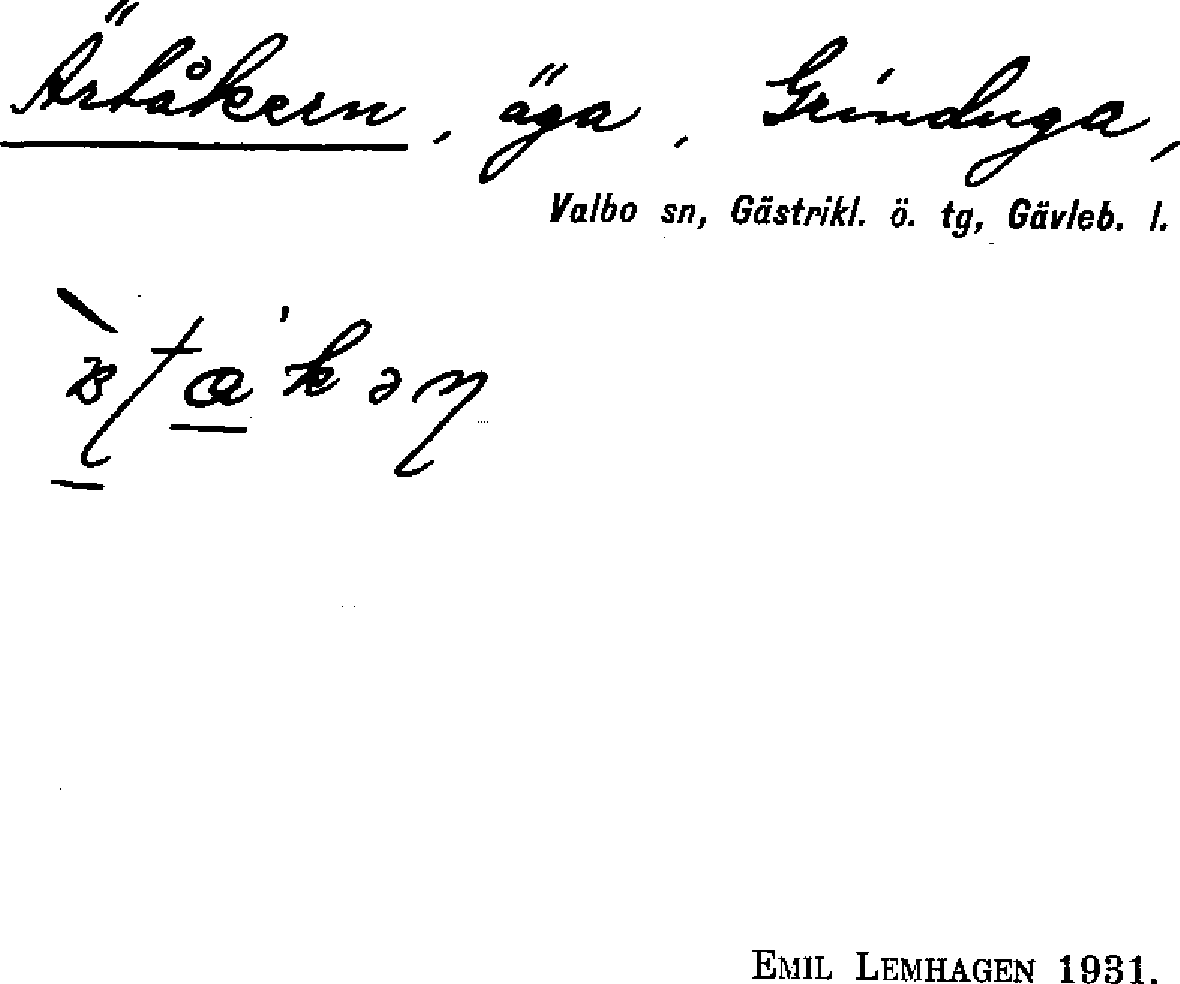 Ärtåkern, äga, Grinduga,
Valbo sn, Gästrikl. ö. tg, Gävleb. l.
EMIL LEMHAGEN 1931.